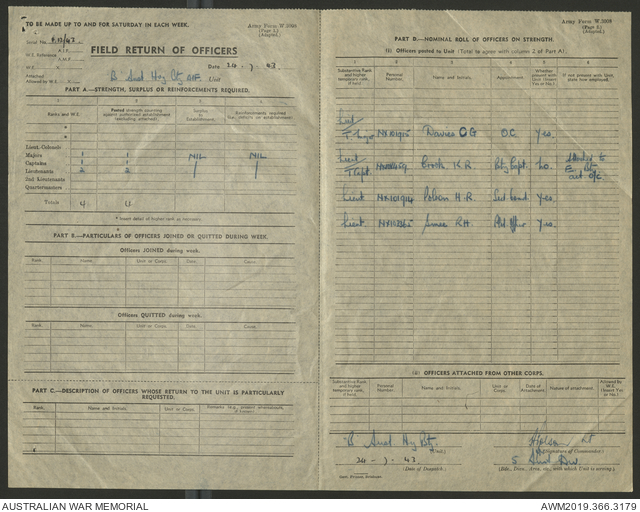 TO BE MADE UP TO AND FOR SATURDAY IN EACH WEEK.
Army Form W.3008
(Page 2.)
(Adapted.)
Serial No.
FIELD RETURN OF OFFICERS
W.E. Reference
A.I.F.
A.M.F.
Date 24-7-43
B Aust Hy Bt, AIF. Unit
Attached
Allowed by W.E.
PART A.—STRENGTH, SURPLUS OR REINFORCEMENTS REQUIRED.
1 2 3 4 5
Rarity and W.E.
Posted strength
Surplus to Establishment.
Reinforcements required
Lieut. Colonels
Majors 1 1 NIL NIL
Captains 1 1
Lieutenants 2 2
2nd Lieutenants
Quartermasters
Totals 4 4
* Insert detail of higher rank as necessary.
PART B.—PARTICULARS OF OFFICERS JOINED OR QUITTED DURING WEEK.
Officers JOINED during week.
Rank. Name. Unit or Corps. Date. Rank. Name. Unit or Corps. Date.
Officers QUITTED during week.
Rank. Name. Unit or Corps. Date. Rank. Name. Unit or Corps. Date.
PART C.—DESCRIPTION OF OFFICERS WHOSE RETURN TO THE UNIT IS PARTICULARLY REQUESTED.
Rank. Name and Initials. Unit or Corps. Remarks (e.g., present whereabouts, if known).
Army Form W.3008
(Page 3.)
(Adapted.)
PART D.—NOMINAL ROLL OF OFFICERS ON STRENGTH.
(i) Officers posted to Unit (Total to agree with column 2 of Part A).
1 2 3 4 5 6
Substantive Rank and higher temporary rank, if held.
Personal Number.
Name and Initials.
Appointment.
Whether present with Unit (Insert Yes or No.)
If not present with Unit, state how employed.
Lieut
T Major Davies C G O.C. Yes.
Lieut
T Capt. Brook K.R. Bty Capt. No.
Lieut NX101914 Polson H.R. Yes.
Lieut R.H. Yes.
(ii) OFFICERS ATTACHED FROM OTHER CORPS.
Substantive Rank and higher temporary rank, if held.
Personal Number.
Name and Initials.
Unit or Corps.
Date of Attachment.
Nature of attachment.
Allowed by W.E. (Insert Yes or No.)
B Aust Hy Bt
(Unit.)
HPolson Lt
(Signature of Commander.)
24-7-43
(Date of Despatch.)
5 Aust Div
(Bde., Divn., Area, etc., with which Unit is serving.)
AUSTRALIAN WAR MEMORIAL
AWM2019.366.3179